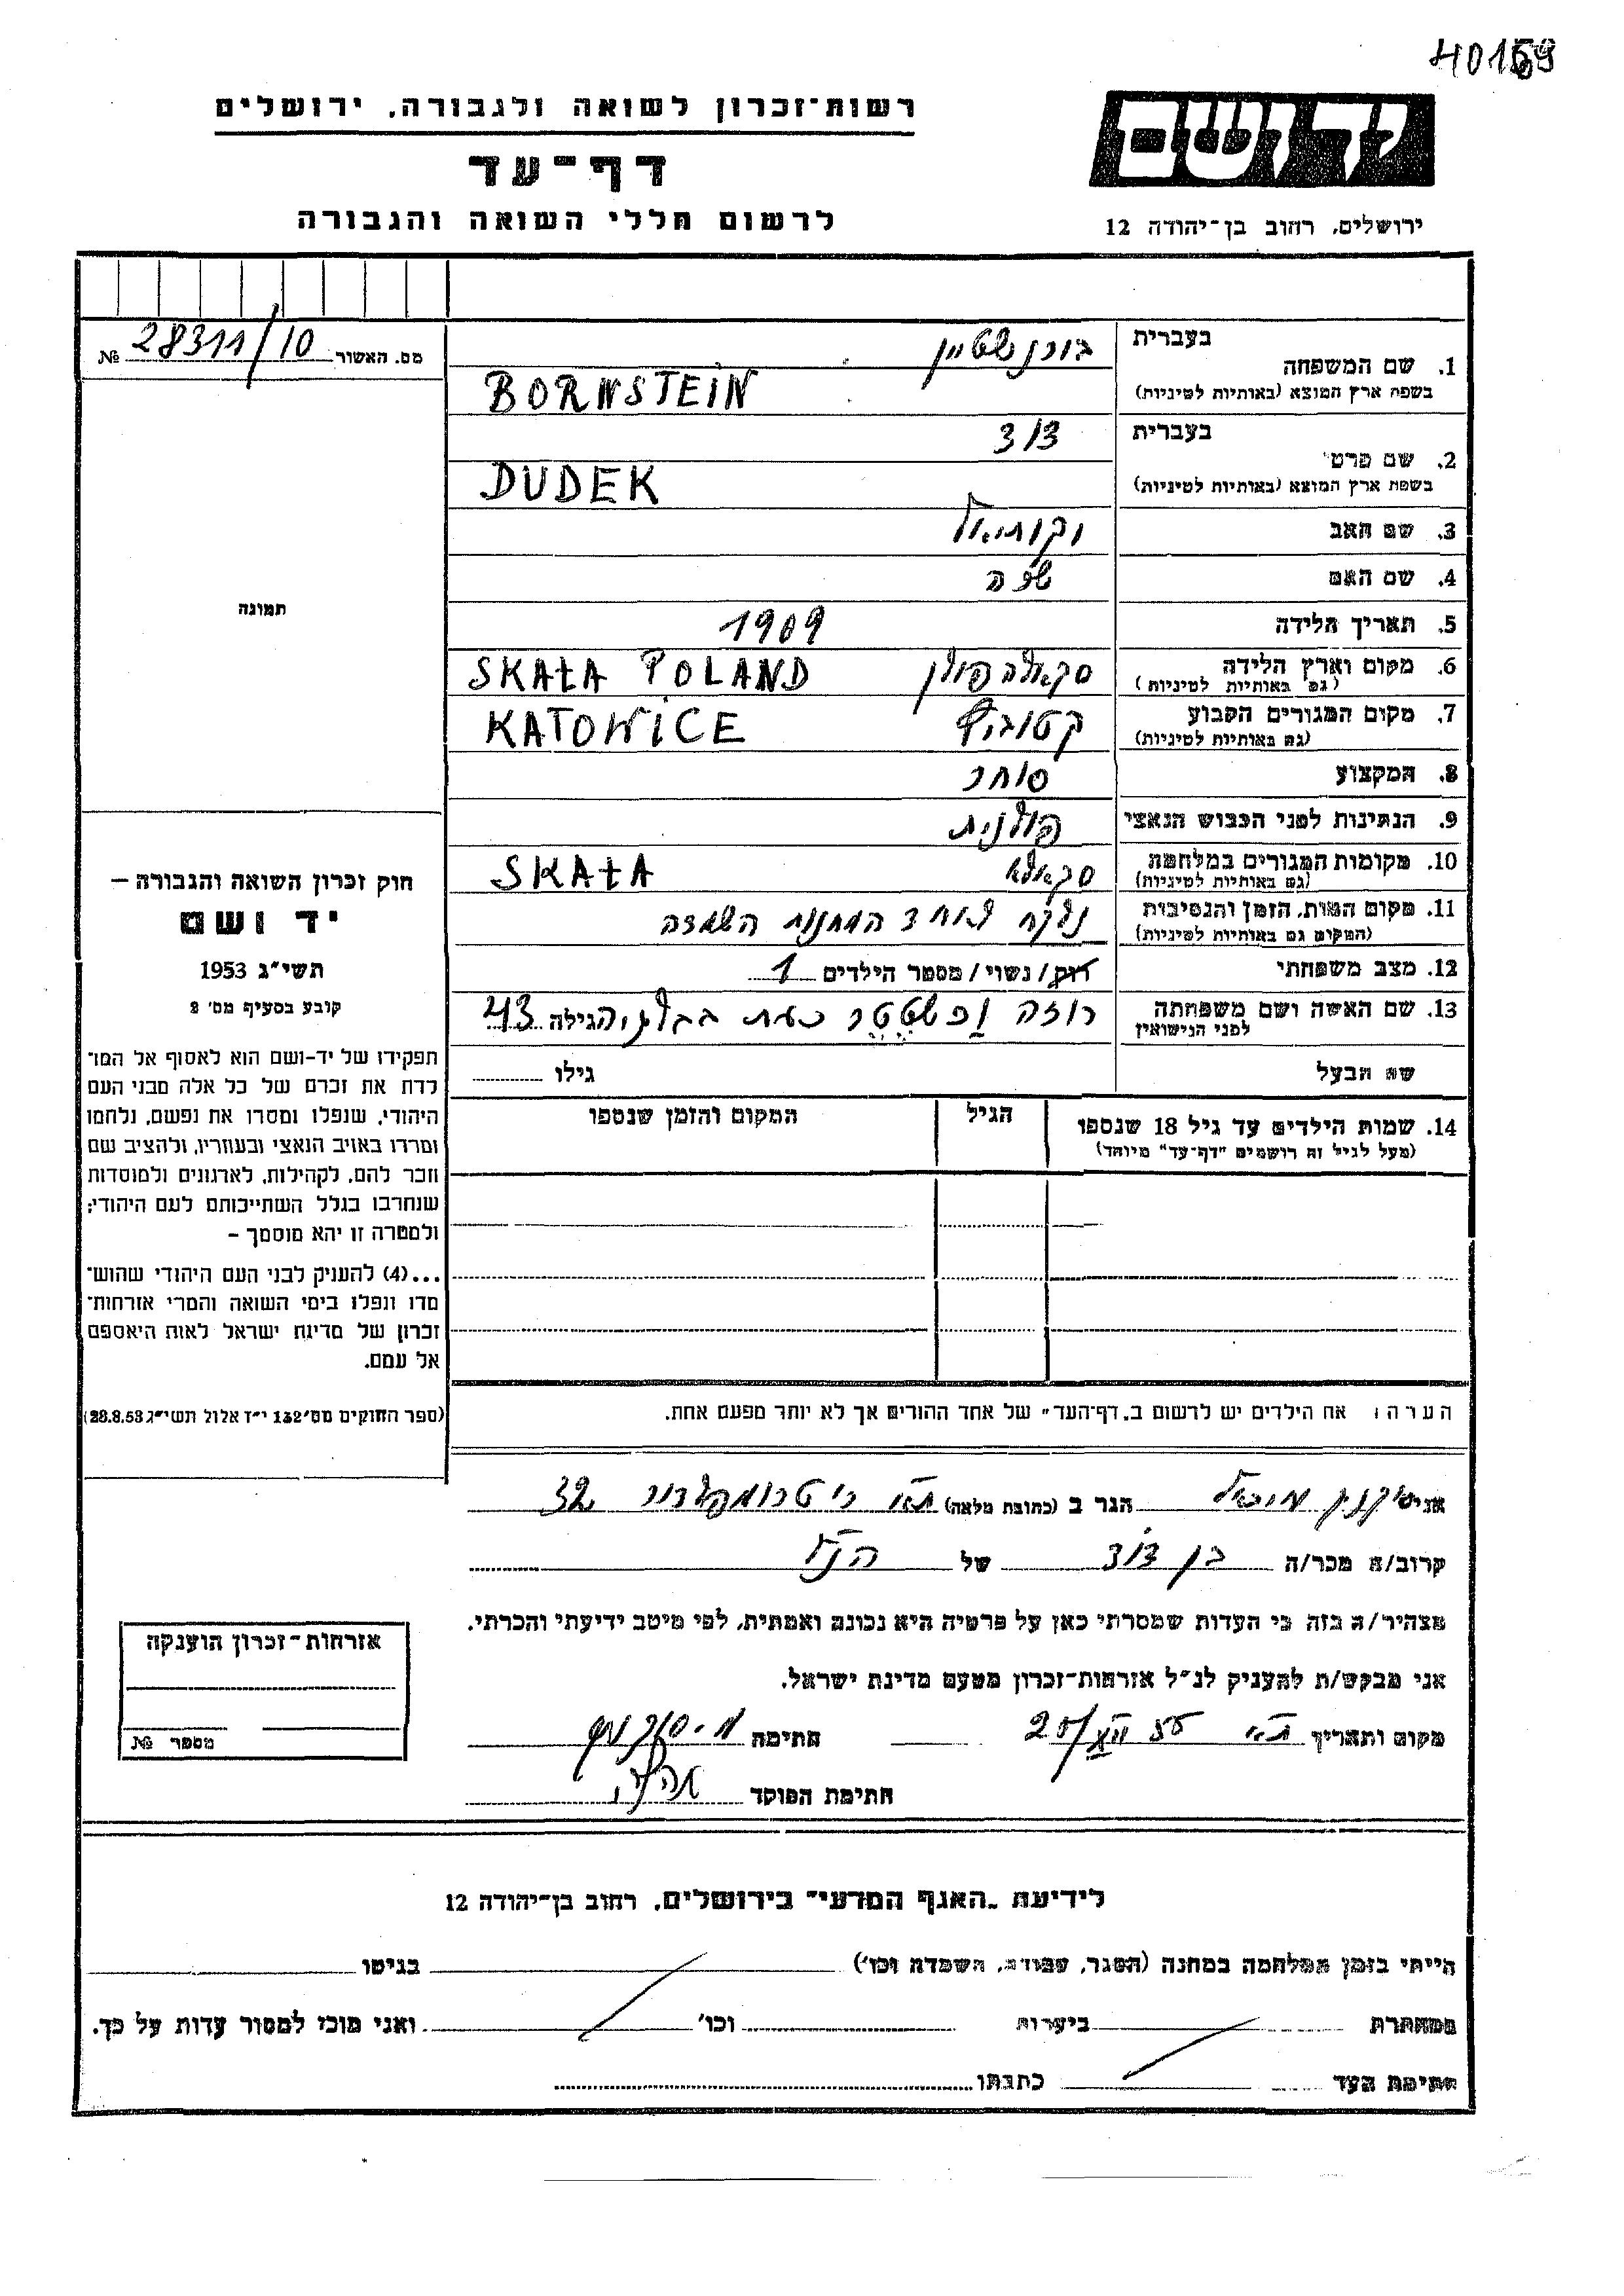 40169
רשות־זכרון לשואה ולגבורה, ירושלים
דף־עד
לרשום חללי השואה והגבורה
יד ושם
ירושלים, רחוב בן־יהודה 12
מס. האשור 28311/10 №
תמונה
חוק זכרון השואה והגבורה —
יד ושם
תשי״ג 1953
קובע בסעיף מס׳ 2
תפקידו של יד-ושם הוא לאסוף אל המו־
לדת את זכרם של כל אלה מבני העם
היהודי, שנפלו ומסרו את נפשם, נלחמו
ומרדו באויב הנאצי ובעוזריו, ולהציב שם
וזכר להם, לקהילות, לארגונים ולמוסדות
שנחרבו בגלל השתייכותם לעם היהודי;
ולמטרה זו יהא מוסמך –
...(4) להעניק לבני העם היהודי שהוש־
מדו ונפלו בימי השואה והמרי אזרחות־
זכרון של מדינת ישראל לאות היאספם
אל עמם.
(ספר החוקים מס׳ 132 י״ז אלול תשי״ג 28.8.53)
בעברית בורנשטיין
1. שם המשפחה
בשפת ארץ המוצא (באותיות לטיניות) BORNSTEIN
בעברית דוד
2. שם פרטי
בשפת ארץ המוצא (באותיות לטיניות) DUDEK
3. שם האב יקותיאל
4. שם האם
5. תאריך הלידה 1909
6. מקום וארץ הלידה סקאלה פולין SKAŁA POLAND
(גם באותיות לטיניות)
7. מקום המגורים הקבוע קטוביץ KATOWICE
(גם באותיות לטיניות)
8. המקצוע סוחר
9. הנתינות לפני הכבוש הנאצי פולנית
10. מקומות המגורים במלחמה סקאלא SKAŁA
(גם באותיות לטיניות)
11. מקום המות, הזמן והנסיבות נלקח לאחד המחנות השמדה
(המקום גם באותיות לטיניות)
12. מצב משפחתי רווק/ נשוי/ מספר הילדים 1
13. שם האשה ושם משפחתה רוזה כעת בבלגיה הגילה 43
לפני הנישואין
שם הבעל גילו
14. שמות הילדים עד גיל 18 שנספו הגיל המקום והזמן שנספו
(מעל לגיל זה רושמים ״דף־עד״ מיוחד)
הערה: את הילדים יש לרשום ב„דף־העד״ של אחד ההורים אך לא יותר מפעם אחת.
אני מיכאל הגר ב (כתובת מלאה) ת״א רח׳ טרומפלדור 32
קרוב/ה מכר/ה בן דוד של הנ״ל
מצהיר/ה בזה כי העדות שמסרתי כאן על פרטיה היא נכונה ואמתית, לפי מיטב ידיעתי והכרתי.
אני מבקש/ת להעניק לנ״ל אזרחות־זכרון מטעם מדינת ישראל.
מקום ותאריך ת״א 20/XII 55 חתימה
חתימת הפוקד
אזרחות־זכרון הוענקה
מספר №
לידיעת „האגף המדעי״ בירושלים, רחוב בן־יהודה 12
הייתי בזמן המלחמה במחנה (הסגר, עבודה, השמדה וכו׳) בגיטו
במחתרת ביערות וכו׳ ואני מוכן למסור עדות על כך.
חתימת העד כתבתו